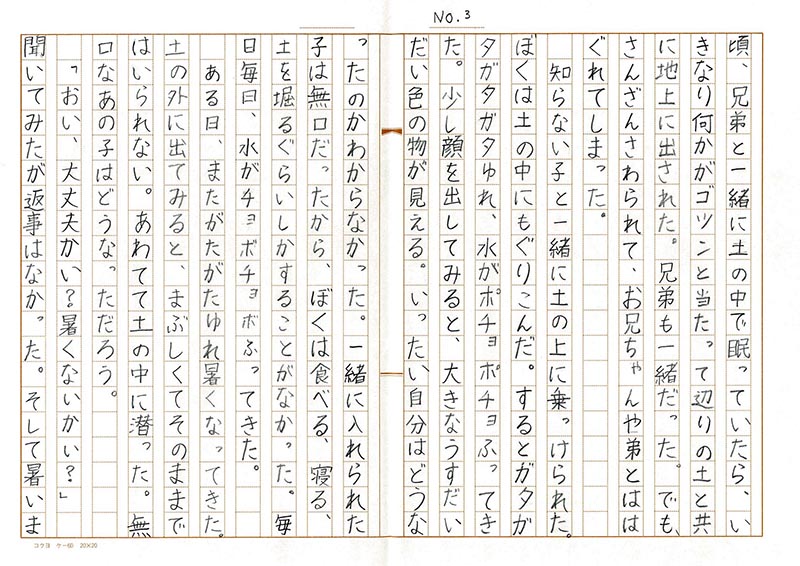 No.3
頃、兄弟と一緒に土の中で眠っていたら、い
きなり何かがゴツンと当たって辺りの土と共
に地上に出された。兄弟も一緒だった。でも、
さんざんさわられて、お兄ちゃんや弟とはは
ぐれてしまった。
知らない子と一緒に土の上に乗っけられた。
ぼくは土の中にもぐりこんだ。するとガタガ
タガタガタゆれ、水がポチョポチョふってき
た。少し顔を出してみると、大きなうすだいい
だい色の物が見える。いったい自分はどうな
ったのかわからなかった。一緒に入れられた
子は無口だったから、ぼくは食べる、寝る、
土を堀るぐらいしかすることがなかった。毎
日毎日、水がチョボチョボふってきた。
ある日、またがたがたゆれ暑くなってきた。
土の外に出てみると、まぶしくてそのままで
はいられない。あわてて土の中に潜った。無
口なあの子はどうなっただろう。
「おい、大丈夫かい？暑くないかい？」
聞いてみたが返事はなかった。そして暑いま
コクヨ ケー60 20×20